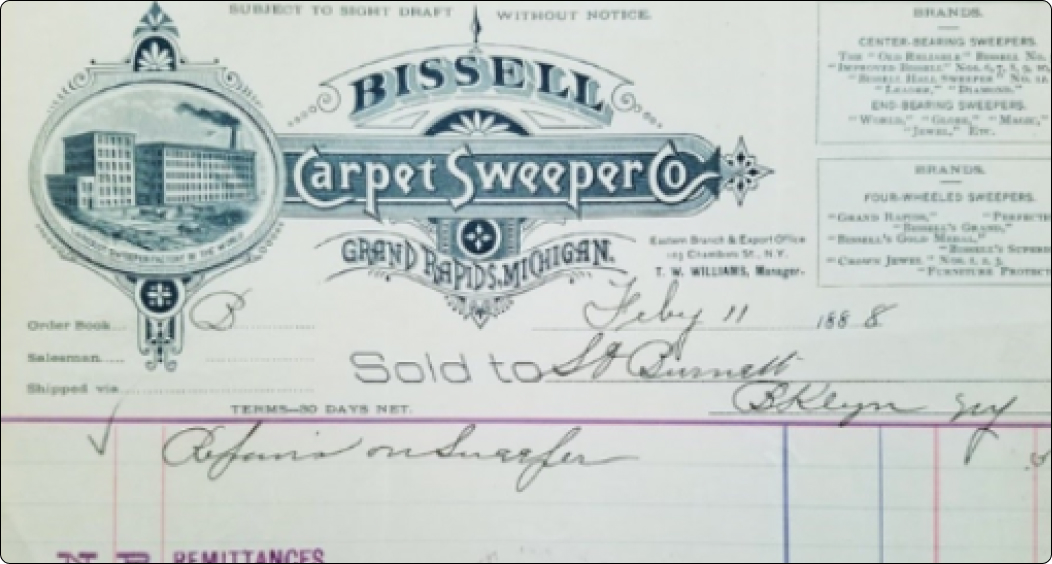 SUBJECT TO SIGHT DRAFT WITHOUT NOTICE.
BISSELL
Carpet Sweeper Co
GRAND RAPIDS, MICHIGAN.
LARGEST SWEEPER FACTORY IN THE WORLD
Eastern Branch & Export Office
103 Chambers St., N.Y.
T. W. WILLIAMS, Manager.
BRANDS.
CENTER-BEARING SWEEPERS.
The "Old Reliable" Bissell No.
"Improved Bissell" Nos. 6, 7, 8, 9, 10,
"Bissell Hall Sweeper" No. 12.
"Leader," "Diamond,"
END-BEARING SWEEPERS.
"World," "Globe," "Magic,"
"Jewel," Etc.
BRANDS.
FOUR-WHEELED SWEEPERS.
"Grand Rapids," "Perfecti
"Bissell's Grand,"
"Bissell's Gold Medal,"
"Bissell's Superb
"Crown Jewel" Nos. 1, 2, 3,
"Furniture Protect
Feby 11 1888
Order Book B
Salesman
Shipped via
Sold to Burnett
BKlyn NY
TERMS—30 DAYS NET.
Repairs on Sweeper
N.B. REMITTANCES